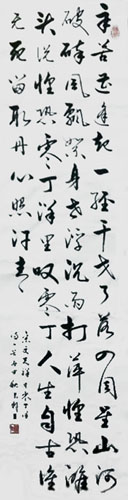 辛苦遭逢起一经干戈寥落四周星山河
破碎风飘絮身世浮沉雨打萍惶恐滩
头说惶恐零丁洋里叹零丁人生自古谁
无死留取丹心照汗青
文天祥过零丁洋